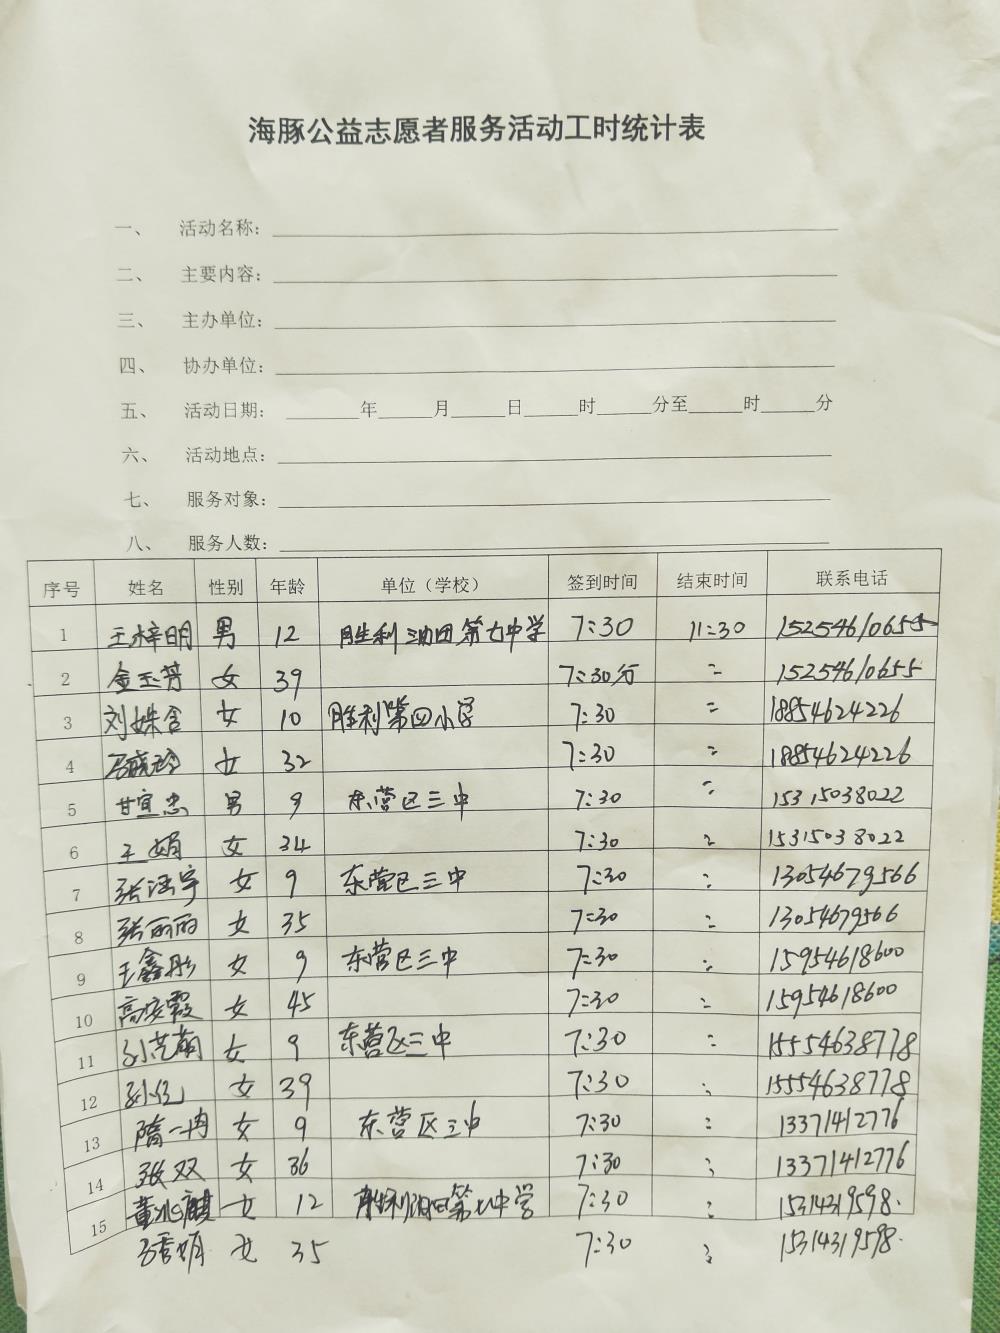 海豚公益志愿者服务活动工时统计表
一、 活动名称：
二、 主要内容：
三、 主办单位：
四、 协办单位：
五、 活动日期： 年 月 日 时 分至 时 分
六、 活动地点：
七、 服务对象：
八、 服务人数：
序号 姓名 性别 年龄 单位（学校） 签到时间 结束时间 联系电话
1 王梓明 男 12 胜利油田第七中学 7:30 11:30 15254610655
2 金玉芳 女 39 7:30分 〃 15254610655
3 刘姝含 女 10 胜利第四小学 7:30 〃 18854624226
4 女 32 7:30 〃 18854624226
5 甘宜忠 男 9 东营区三中 7:30 〃 15315038022
6 王娟 女 34 7:30 〃 15315038022
7 张涵宇 女 9 东营区三中 7:30 〃 13054679566
8 张丽丽 女 35 7:30 〃 13054679566
9 王鑫彤 女 9 东营区三中 7:30 〃 15954618600
10 高 霞 女 45 7:30 〃 15954618600
11 孙艺萌 女 9 东营区三中 7:30 〃 15554638778
12 孙 女 39 7:30 〃 15554638778
13 隋一冉 女 9 东营区三中 7:30 〃 13371412776
14 张双 女 36 7:30 〃 13371412776
15 董 麒 女 12 胜利油田第七中学 7:30 〃 15314319598.
女 35 7:30 〃 15314319598.